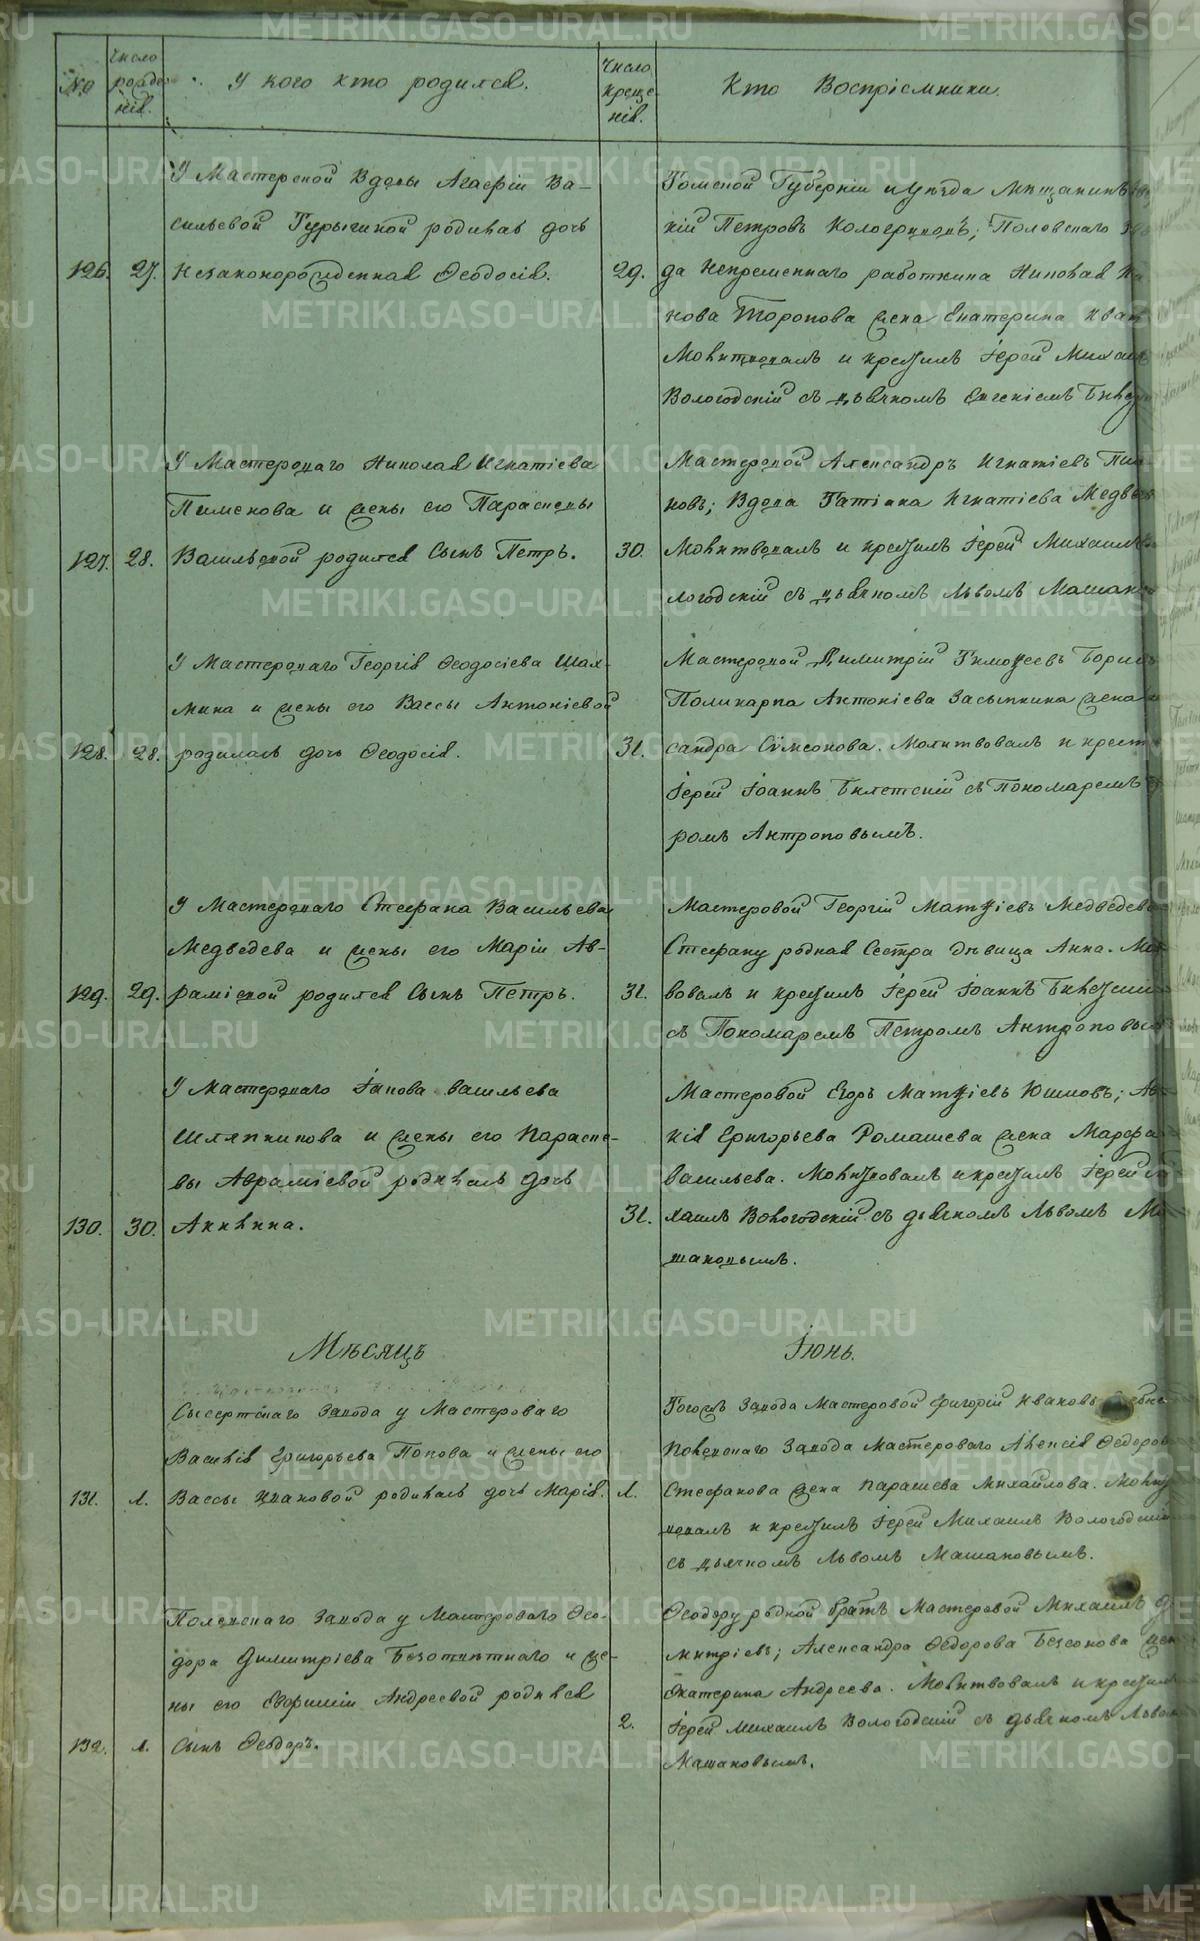 №
Число рожде-нія.
У кого кто родился.
Число креще-нія.
Кто Воспріемники.
У Мастерской Вдовы Агафіи Ва-
сильевой Гурыгиной родилась дочь
126. 27. Незаконорожденная Ѳеодосія.
Томской Губерніи и уѣзда Мѣщанинъ
кій Петровъ Кологривовъ; Полевскаго
29. да Непременнаго работника Николая
нова Торопова жена Екатерина Иван
Молитвовалъ и крестилъ Іерей Михаилъ
Вологодскій съ дьячкомъ Евгеніемъ
У Мастероваго Николая Игнатіева
Пименова и жены его Параскевы
127. 28. Васильевой родился Сынъ Петръ.
Мастеровой Александръ Игнатіевъ Пим
новъ; Вдова Татіана Игнатіева Медвѣд
30. Молитвовалъ и крестилъ Іерей Михаилъ
логодскій съ дьячкомъ Львомъ Машано
У Мастероваго Георгія Ѳеодосіева Шах-
мина и жены его Вассы Антоніевой
128. 28. родилась дочь Ѳеодосія.
Мастеровой Димитрій Тимоѳеевъ
Поликарпа Антоніева Засыпкина жена
31. сандра Сѵмсонова. Молитвовалъ и крести
Іерей Іоаннъ съ Пономаремъ
ромъ Антроповымъ.
У Мастероваго Стефана Васильева
Медведева и жены его Маріи Ав-
129. 29. раміевой родился Сынъ Петръ.
Мастеровой Георгій Матѳіевъ Медведевъ
Стефану родная Сестра дѣвица Анна. Мол
31. вовалъ и крестилъ Іерей Іоаннъ
съ Пономаремъ Петромъ Антроповым
У Мастероваго Іакова Васильева
Шляпникова и жены его Параске-
вы Авраміевой родилась дочь
130. 30. Акилина.
Мастеровой Егоръ Матѳіевъ Юшковъ;
кія Григорьева Ромашева жена Марфа
Васильева. Молитвовалъ и крестилъ Іерей
31. хаилъ Вологодскій съ дьячкомъ Львомъ Ма
шановымъ.
Мѣсяцъ
Іюнь.
Сысертскаго Завода у Мастероваго
Василія Григорьева Попова и жены его
131. 1. Вассы Ивановой родилась дочь Марія.
Тогожъ Завода Мастеровой Григорій Ивановъ
Полевскаго Завода Мастероваго Алексія Ѳедоров
1. Стефанова жена Парасѣева Михайлова. Молит
вовалъ и крестилъ Іерей Михаилъ Вологодскій
съ дьячкомъ Львомъ Машановымъ.
Полевскаго Завода у Мастероваго Ѳео-
дора Димитріева Безотвѣтнаго и же-
ны его Евфиміи Андреевой родился
132. 1. Сынъ Ѳеодоръ.
Ѳеодору родной братъ Мастеровой Михаилъ
митріевъ; Александра Ѳедорова Безсонова жен
Екатерина Андреева. Молитвовалъ и крестилъ
2. Іерей Михаилъ Вологодскій съ дьячкомъ Львом
Машановымъ.
METRIKI.GASO-URAL.RU